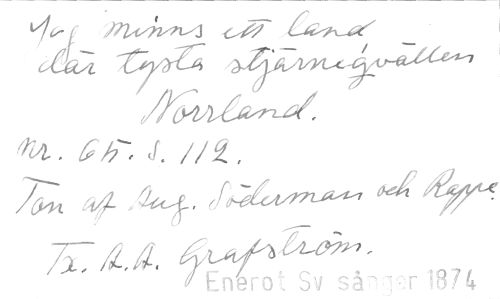 Jag minns ett land
där tysta stjärnegvällen
Norrland.
Nr. 65. S. 112.
Ton af Aug. Söderman och Rappe.
Tx. A.A. Grafström.
Enerot Sv sånger 1874